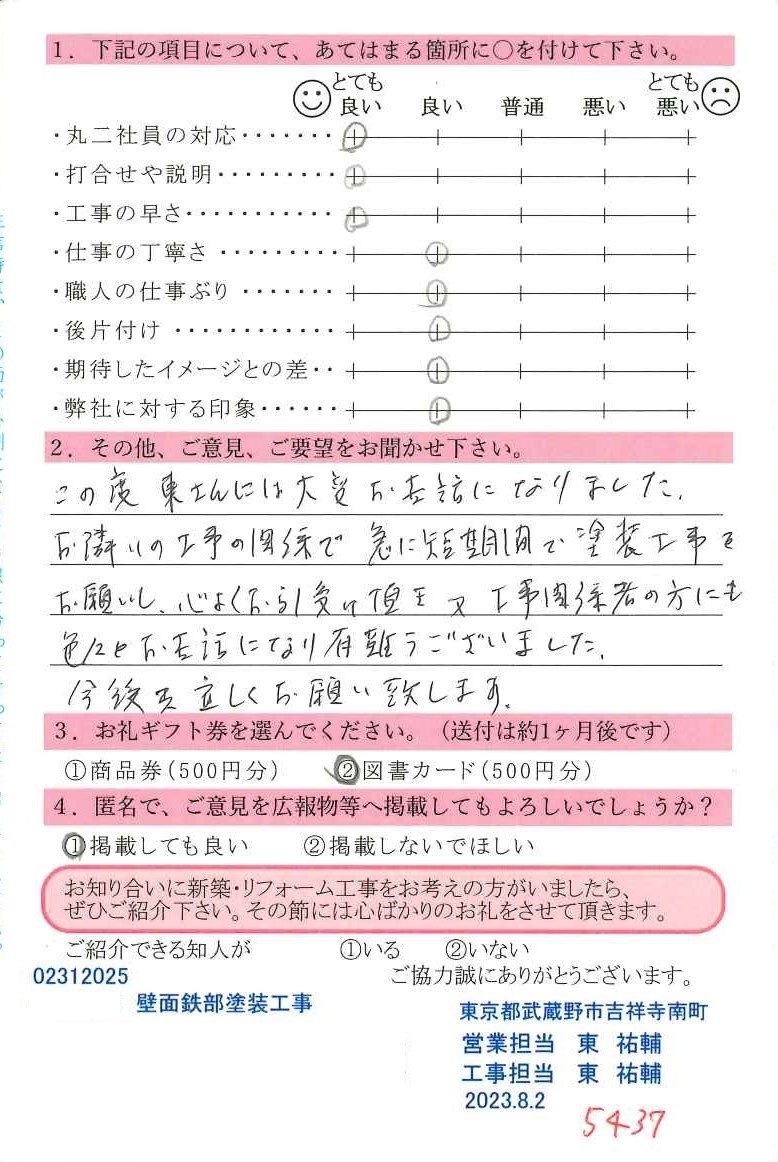 1．下記の項目について、あてはまる箇所に○を付けて下さい。
とても良い 良い 普通 悪い とても悪い
・丸二社員の対応・・・・・・・
・打合せや説明・・・・・・・・・
・工事の早さ・・・・・・・・・・・
・仕事の丁寧さ ・・・・・・・・・
・職人の仕事ぶり ・・・・・・・
・後片付け ・・・・・・・・・・・・
・期待したイメージとの差・・
・弊社に対する印象・・・・・・
2．その他、ご意見、ご要望をお聞かせ下さい。
この度 東さんには大変お世話になりました。
お隣りの工事の関係で 急に短期間で塗装工事を
お願いし、心よくお引受け頂き 又 工事関係者の方にも
色々とお世話になり有難うございました。
今後共宜しくお願い致します。
3．お礼ギフト券を選んでください。（送付は約1ヶ月後です）
①商品券（500円分） ②図書カード（500円分）
4．匿名で、ご意見を広報物等へ掲載してもよろしいでしょうか？
①掲載しても良い ②掲載しないでほしい
お知り合いに新築・リフォーム工事をお考えの方がいましたら、
ぜひご紹介下さい。その節には心ばかりのお礼をさせて頂きます。
ご紹介できる知人が ①いる ②いない
02312025 ご協力誠にありがとうございます。
壁面鉄部塗装工事 東京都武蔵野市吉祥寺南町
営業担当 東 祐輔
工事担当 東 祐輔
2023.8.2
5437